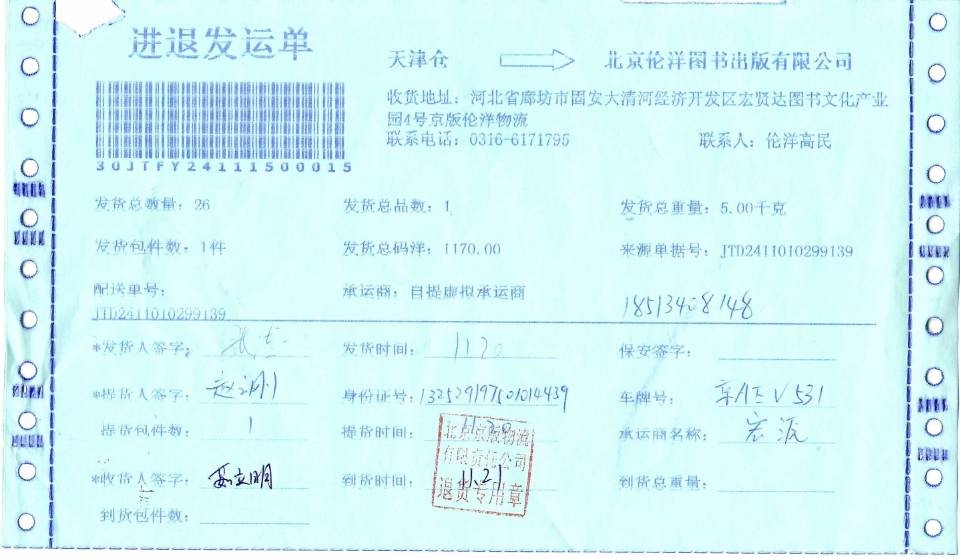 进退发运单
天津仓
北京伦洋图书出版有限公司
收货地址：河北省廊坊市固安大清河经济开发区宏贤达图书文化产业
园4号京版伦洋物流
联系电话：0316-6171795 联系人：伦洋高民
30JTFY24111500015
发货总数量：26 发货总品数：1 发货总重量：5.00千克
发货包件数：1件 发货总码洋：1170.00 来源单据号：JTD2411010299139
配送单号： 承运商：自提虚拟承运商
JTD2411010299139 18513408148
*发货人签字： 发货时间：1120 保安签字：
*提货人签字： 身份证号：132529197501014439 车牌号：
提货包件数：1 提货时间：11.20 承运商名称：宏派
*收货人签字： 到货时间：11.21 到货总重量：
到货包件数：
北京京版物流
有限责任公司
退货专用章